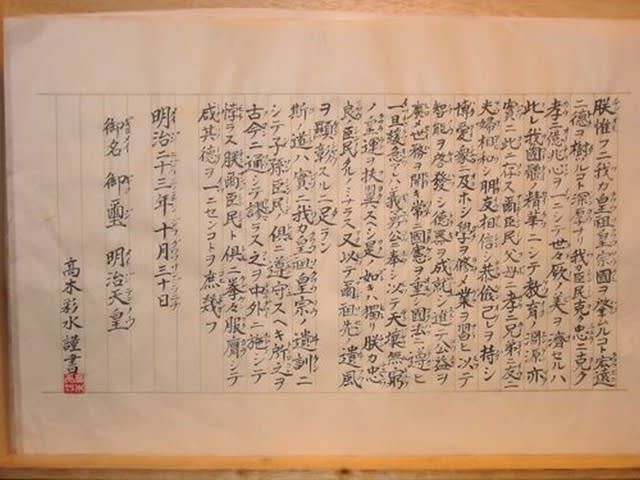 朕惟フニ我カ皇祖皇宗國ヲ肇ムルコト宏遠
ニ德ヲ樹ツルコト深厚ナリ我カ臣民克ク忠ニ克ク
孝ニ億兆心ヲ一ニシテ世々厥ノ美ヲ濟セルハ
此レ我カ國體ノ精華ニシテ教育ノ淵源亦
實ニ此ニ存ス爾臣民父母ニ孝ニ兄弟ニ友ニ
夫婦相和シ朋友相信シ恭儉己レヲ持シ
博愛衆ニ及ホシ學ヲ修メ業ヲ習ヒ以テ
智能ヲ啓發シ德器ヲ成就シ進テ公益ヲ
廣メ世務ヲ開キ常ニ國憲ヲ重シ國法ニ遵ヒ
一旦緩急アレハ義勇公ニ奉シ以テ天壌無窮
ノ皇運ヲ扶翼スヘシ是ノ如キハ獨リ朕カ忠
良ノ臣民タルノミナラス又以テ爾祖先ノ遺風
ヲ顯彰スルニ足ラン
斯ノ道ハ實ニ我カ皇祖皇宗ノ遺訓ニ
シテ子孫臣民ノ俱ニ遵守スヘキ所之ヲ
古今ニ通シテ謬ラス之ヲ中外ニ施シテ
悖ラス朕爾臣民ト俱ニ拳々服膺シテ
咸其德ヲ一ニセンコトヲ庶幾フ
明治二十三年十月三十日
御名 御璽 明治天皇
高木彩水謹書